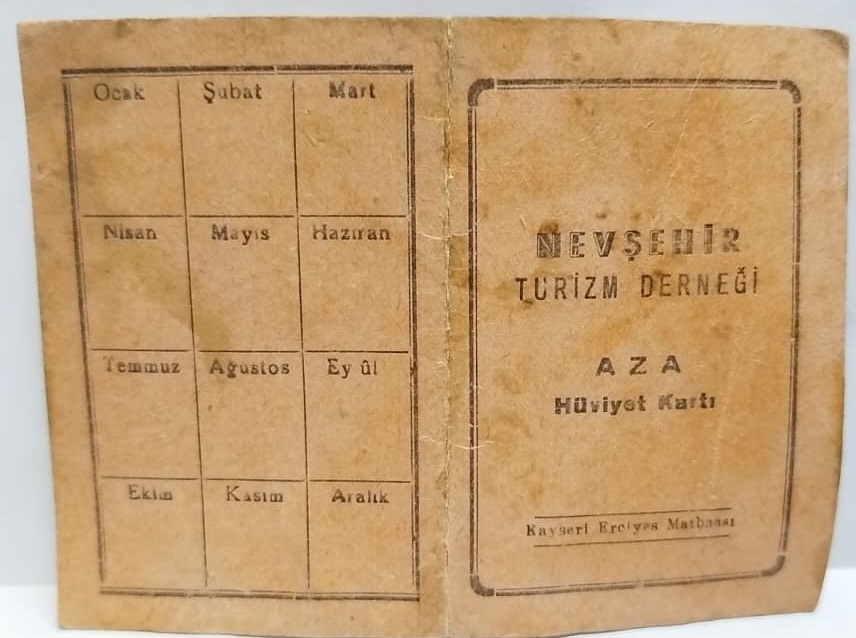 Ocak Şubat Mart
Nisan Mayıs Haziran
Temmuz Ağustos Eylûl
Ekim Kasım Aralık
NEVŞEHİR
TURİZM DERNEĞİ
AZA
Hüviyet Kartı
Kayseri Erciyes Matbaası